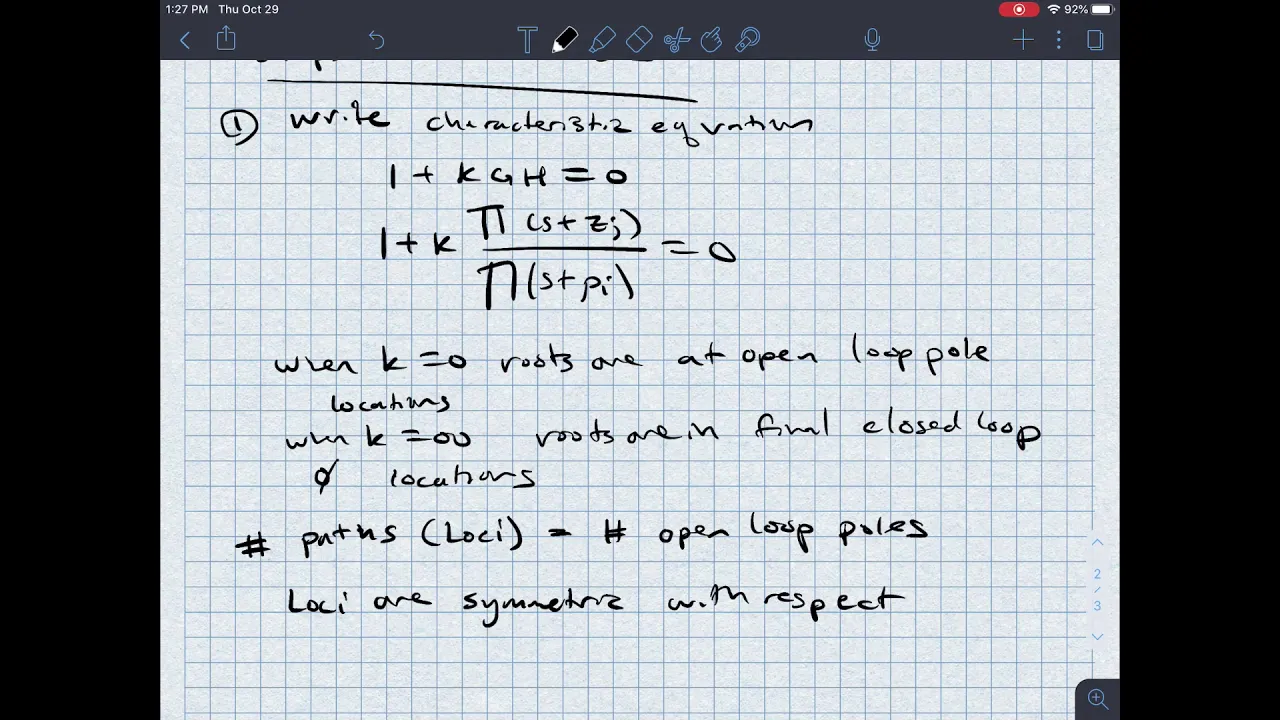 1:27 PM Thu Oct 29 92%
① write characteristic equation
1 + k G H = 0
1 + k ∏(s+zj) / ∏(s+pi) = 0
when k = 0 roots are at open loop pole
locations
when k = ∞ roots are in final closed loop
locations
# paths (Loci) = # open loop poles
Loci are symmetric with respect
2
/
3